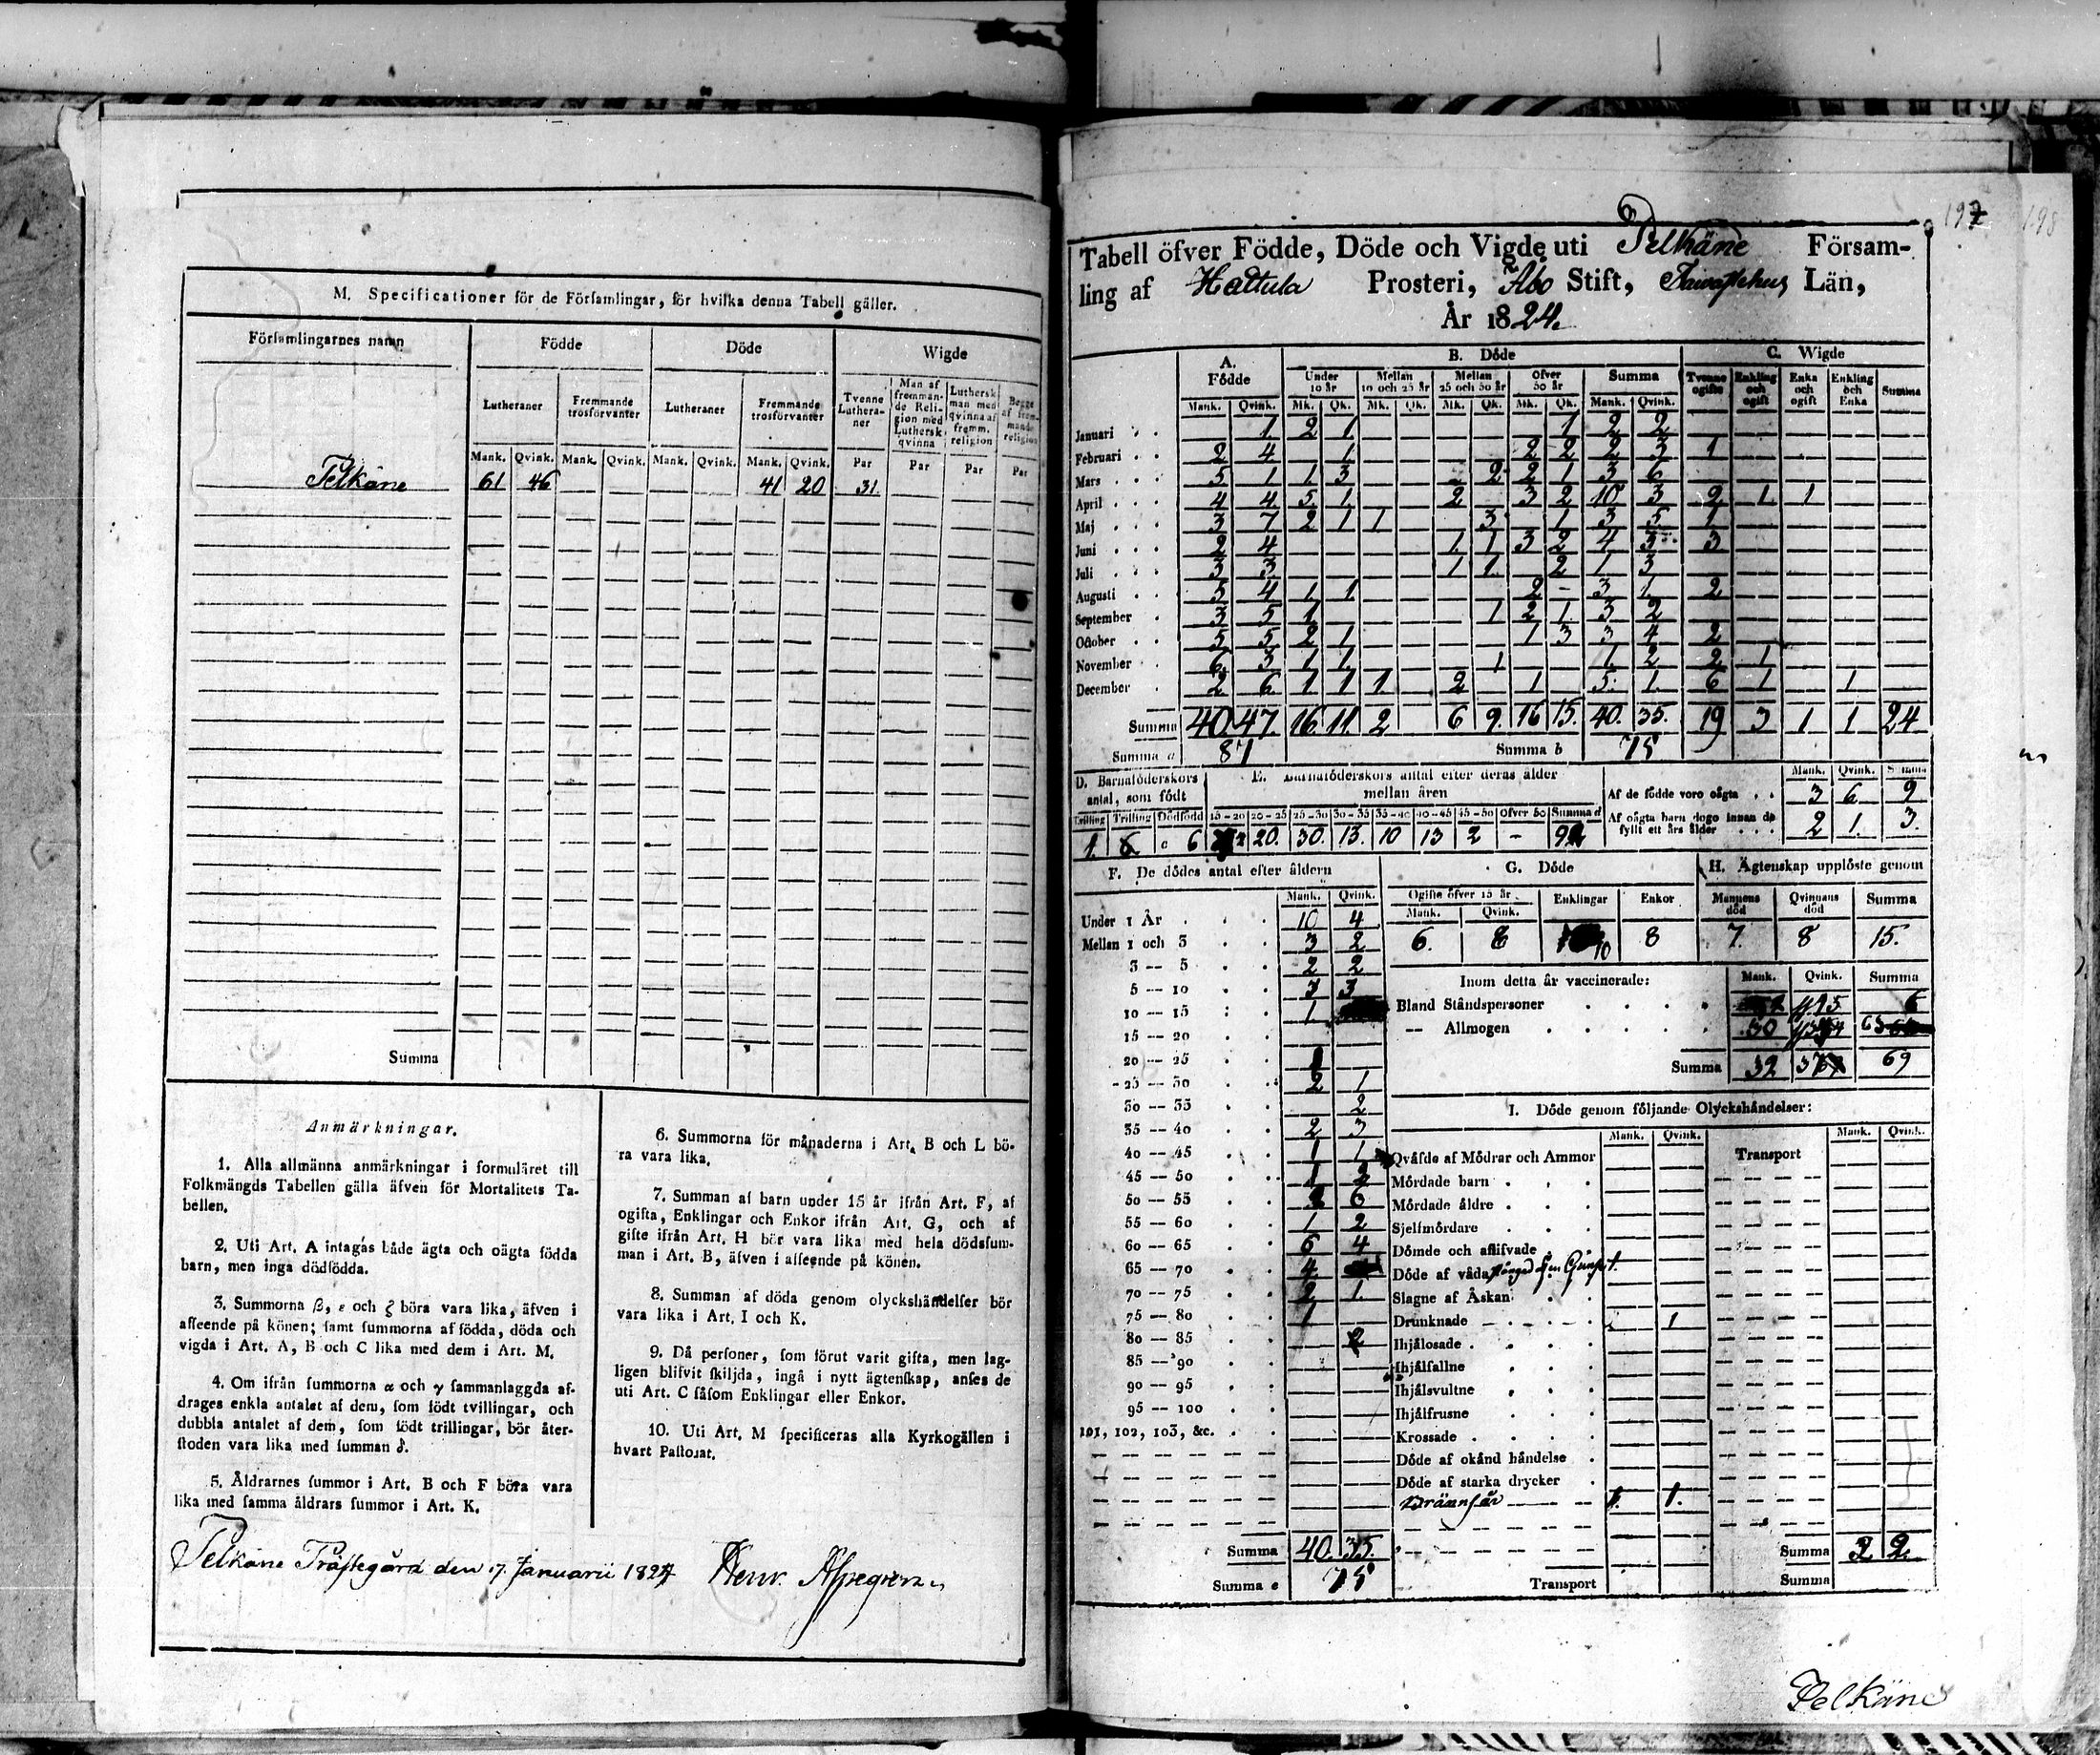 M. Specificationer för de Församlingar, för hvilka denna Tabell gäller.
Församlingarnes namn Födde Döde Wigde
Lutheraner Fremmande trosförvanter Lutheraner Fremmande trosförvanter Tvenne Lutheraner Man af fremmande Religion med Luthersk qvinna Luthersk man med qvinna af fremm. religion Begge af fremmande religion
Mank. Qvink. Mank. Qvink. Mank. Qvink. Mank. Qvink. Par Par Par Par
Pelkäne 61 46 41 20 31
Summa
Anmärkningar.
1. Alla allmänna anmärkningar i formuläret till
Folkmängds Tabellen gälla äfven för Mortalitets Ta-
bellen.
2. Uti Art. A intagas både ägta och oägta födda
barn, men inga dödfödda.
3. Summorna β, ε och ζ böra vara lika, äfven i
afseende på könen; samt summorna af födda, döda och
vigda i Art. A, B och C lika med dem i Art. M.
4. Om ifrån summorna α och γ sammanlaggda af-
drages enkla antalet af dem, som födt tvillingar, och
dubbla antalet af dem, som födt trillingar, bör åter-
stoden vara lika med summan δ.
5. Åldrarnes summor i Art. B och F böra vara
lika med samma åldrars summor i Art. K.
6. Summorna för månaderna i Art. B och L bö-
ra vara lika.
7. Summan af barn under 15 år ifrån Art. F, af
ogifta, Enklingar och Enkor ifrån Art. G, och af
gifte ifrån Art. H bör vara lika med hela dödssum-
man i Art. B, äfven i afseende på könen.
8. Summan af döda genom olyckshändelser bör
vara lika i Art. I och K.
9. Då personer, som förut varit gifta, men lag-
ligen blifvit skiljda, ingå i nytt ägtenskap, anses de
uti Art. C såsom Enklingar eller Enkor.
10. Uti Art. M specificeras alla Kyrkogällen i
hvart Pastorat.
Pelkäne Prästegård den 17 Januarii 182
198
Tabell öfver Födde, Döde och Vigde uti Pelkäne Försam-
ling af Hattula Prosteri, Åbo Stift, Tawastehus Län,
År 1824.
A. Födde B. Döde C. Wigde
Under 10 år Mellan 10 och 25 år Mellan 25 och 50 år Öfver 50 år Summa Tvenne ogifte Enkling och ogift Enka och ogift Enkling och Enka Summa
Mank. Qvink. Mk. Qk. Mk. Qk. Mk. Qk. Mk. Qk. Mank. Qvink.
Januari 1 2 1 1 2 2
Februari 2 4 1 2 2 2 3 1
Mars 5 1 1 3 2 2 1 3 6
April 4 4 5 1 2 3 2 10 3 2 1 1
Maj 3 7 2 1 1 3 1 3 5 1
Juni 2 4 1 1 3 2 4 3 3
Juli 3 3 1 1 2 1 3
Augusti 5 4 1 1 2 - 3 1 2
September 3 5 1 1 2 1 3 2
October 5 5 2 1 1 3 3 4 2
November 6 3 1 1 1 1 2 2 1
December 2 6 1 1 1 2 1 5 1 6 1 1
Summa 40 47 16 11 2 6 9 16 15 40 35 19 3 1 1 24
Summa a 87 Summa b 75
D. Barnaföderskors antal, som födt
E. Barnaföderskors antal efter deras ålder mellan åren
Trilling Tvilling Dödfödd 15-20 20-25 25-30 30-35 35-40 40-45 45-50 Öfver 50 Summa d
1. 6 2 20. 30. 13. 10 13 2 -
Mank. Qvink. Summa
Af de födde voro oägta 3 6 9
Af oägta barn dogo innan de fyllt ett års ålder 2 1. 3.
F. De dödes antal efter åldern
Mank. Qvink.
Under 1 År 10 4
Mellan 1 och 3 3 2
3 — 5 2 2
5 — 10 3 3
10 — 15 1
15 — 20
20 — 25
25 — 30 2 1
30 — 35 2
35 — 40 2 3
40 — 45 1 1
45 — 50 1 2
50 — 55 2 6
55 — 60 1 2
60 — 65 6 4
65 — 70 4
70 — 75 2 1
75 — 80 1
80 — 85 2
85 — 90
90 — 95
95 — 100
101, 102, 103, &c.
Summa 40. 35.
Summa e 75
G. Döde
Ogifte öfver 15 år Enklingar Enkor
Mank. Qvink.
6. 8 10 8
H. Ägtenskap upplöste genom
Mannens död Qvinnans död Summa
7. 8 15.
Inom detta år vaccinerade: Mank. Qvink. Summa
Bland Ståndspersoner 6
— Allmogen 30 63
Summa 32 37 69
I. Döde genom följande Olyckshändelser:
Mank. Qvink. Transport Mank. Qvink.
Qväfde af Mödrar och Ammor
Mördade barn
Mördade äldre
Sjelfmördare
Dömde och aflifvade
Döde af våda
Slagne af Åskan
Drunknade 1
Ihjälosade
Ihjälfallne
Ihjälsvultne
Ihjälfrusne
Krossade
Döde af okänd händelse
Döde af starka drycker
Brännsår 1. 1.
Summa 2 2.
Transport Summa
Pelkäne